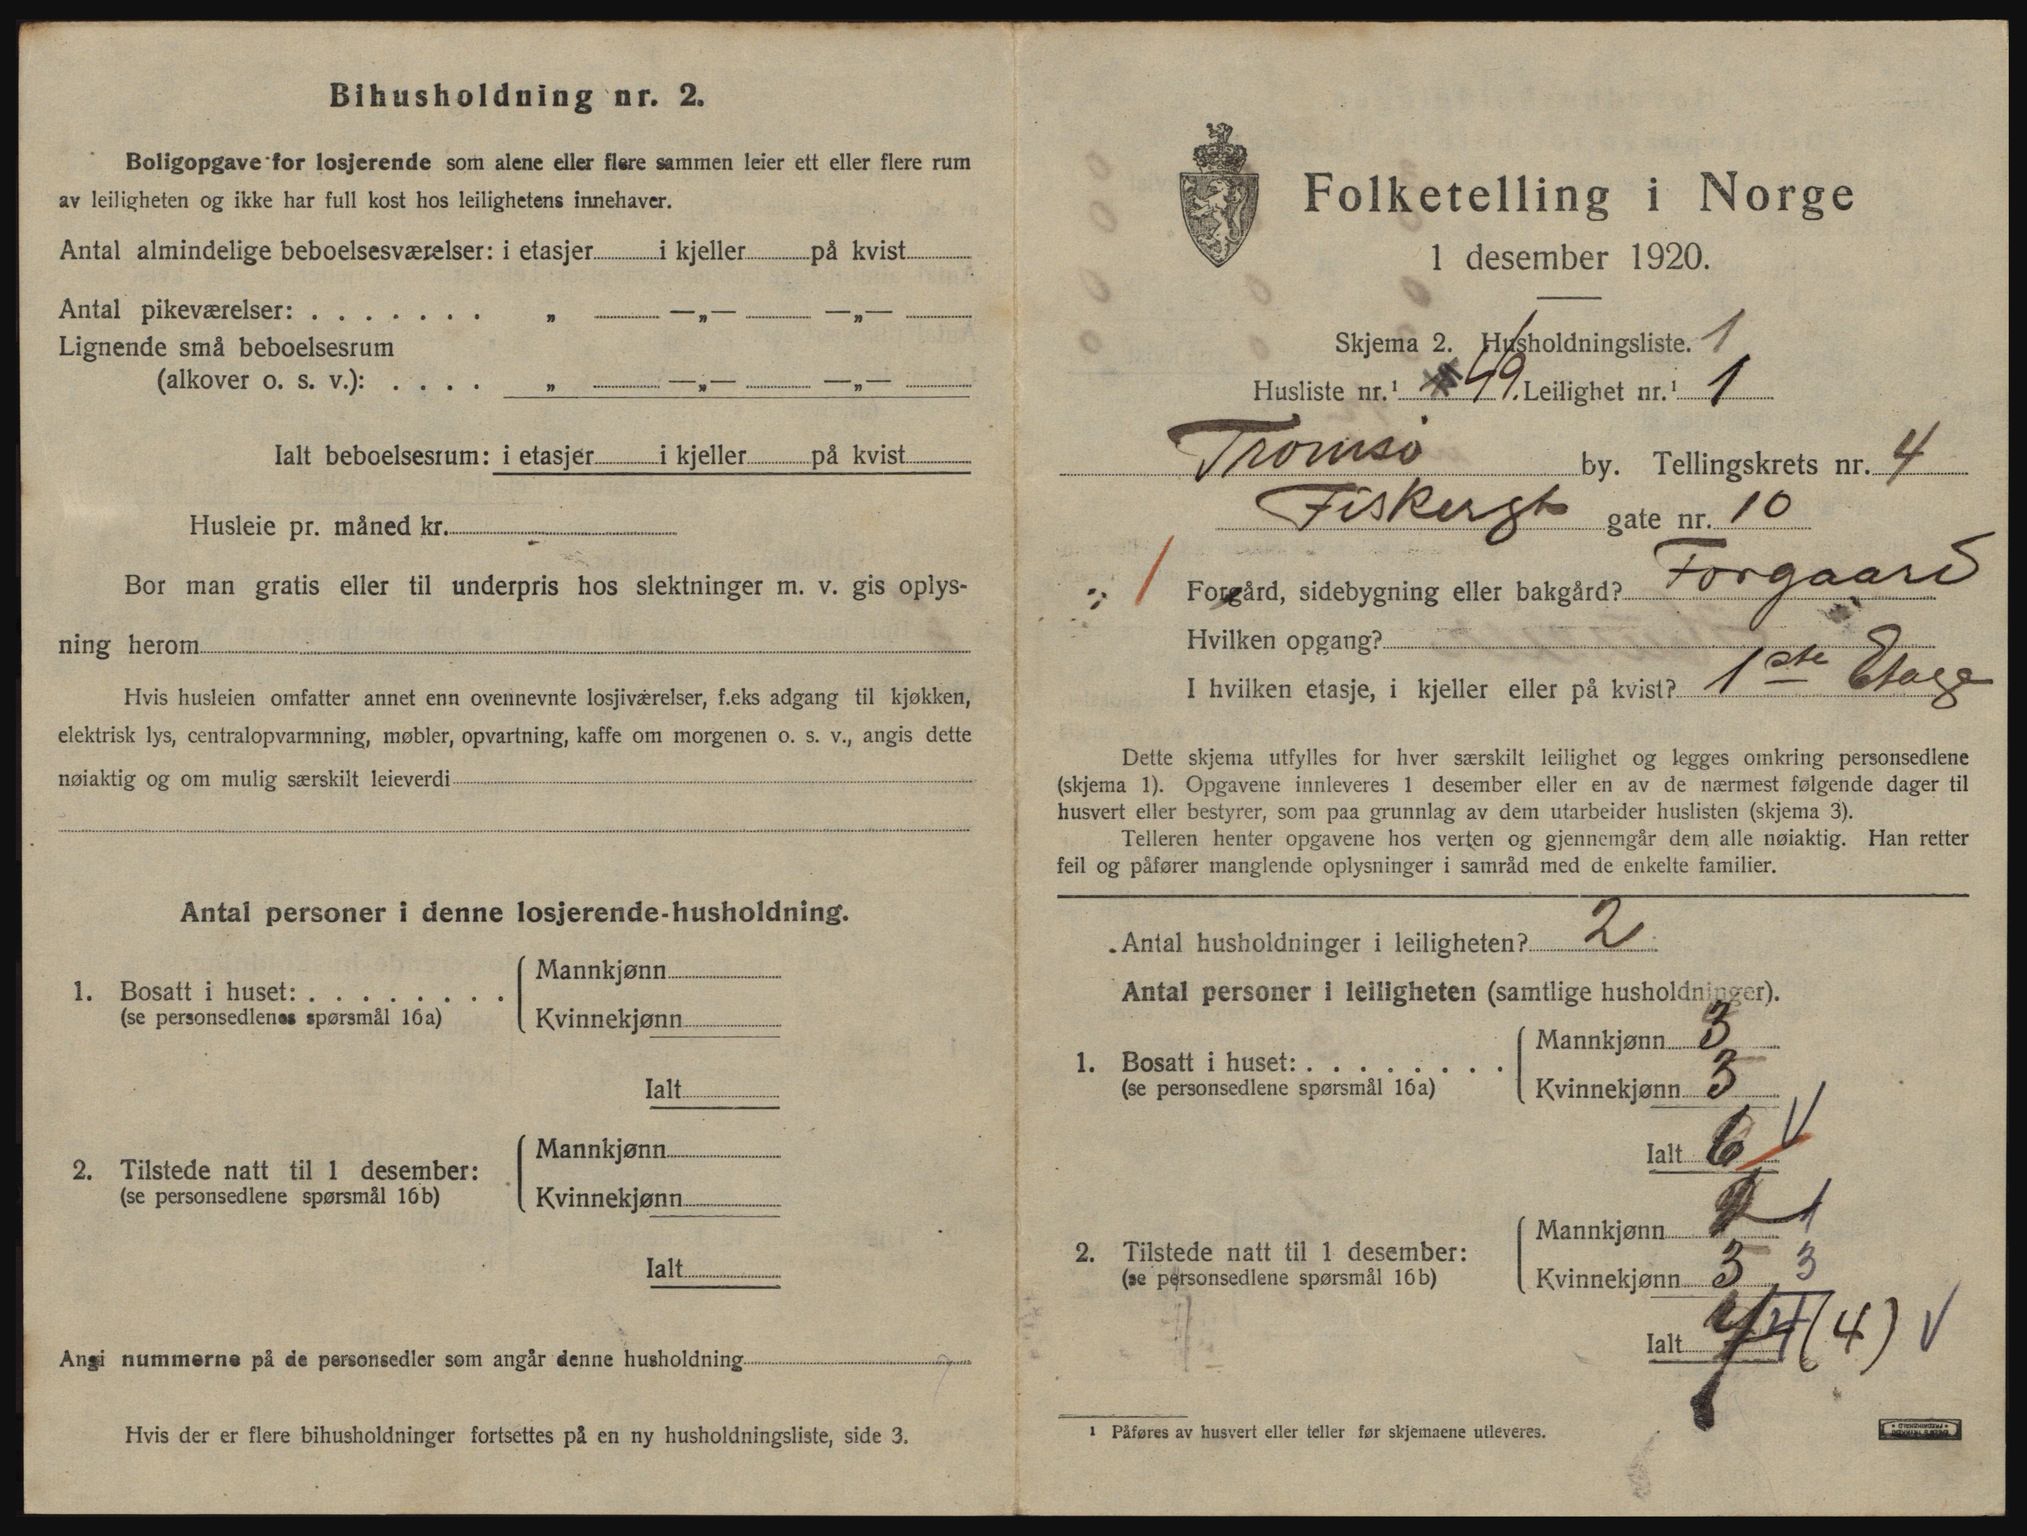 Bihusholdning nr. 2.
Boligopgave for losjerende som alene eller flere sammen leier ett eller flere rum
av leiligheten og ikke har full kost hos leilighetens innehaver.
Antal almindelige beboelsesværelser: i etasjer i kjeller på kvist
Antal pikeværelser: . . . . . . . „ —„— —„—
Lignende små beboelsesrum
(alkover o. s. v.): . . . . „ —„— —„—
Ialt beboelsesrum: i etasjer i kjeller på kvist
Husleie pr. måned kr.
Bor man gratis eller til underpris hos slektninger m. v. gis oplys-
ning herom
Hvis husleien omfatter annet enn ovennevnte losjiværelser, f.eks adgang til kjøkken,
elektrisk lys, centralopvarmning, møbler, opvartning, kaffe om morgenen o. s. v., angis dette
nøiaktig og om mulig særskilt leieverdi
Antal personer i denne losjerende-husholdning.
1. Bosatt i huset: . . . . . . . .
(se personsedlenes spørsmål 16a)
Mannkjønn
Kvinnekjønn
Ialt
2. Tilstede natt til 1 desember:
(se personsedlene spørsmål 16b)
Mannkjønn
Kvinnekjønn
Ialt
Angi nummerne på de personsedler som angår denne husholdning
Hvis der er flere bihusholdninger fortsettes på en ny husholdningsliste, side 3.
Folketelling i Norge
1 desember 1920.
Skjema 2. Husholdningsliste. 1
Husliste nr.¹ 49. Leilighet nr.¹ 1
Tromsø by. Tellingskrets nr. 4
Fiskergt gate nr. 10
1 Forgård, sidebygning eller bakgård? Forgaard
Hvilken opgang?
I hvilken etasje, i kjeller eller på kvist? 1ste Etage
Dette skjema utfylles for hver særskilt leilighet og legges omkring personsedlene
(skjema 1). Opgavene innleveres 1 desember eller en av de nærmest følgende dager til
husvert eller bestyrer, som paa grunnlag av dem utarbeider huslisten (skjema 3).
Telleren henter opgavene hos verten og gjennemgår dem alle nøiaktig. Han retter
feil og påfører manglende oplysninger i samråd med de enkelte familier.
Antal husholdninger i leiligheten? 2
Antal personer i leiligheten (samtlige husholdninger).
1. Bosatt i huset: . . . . . . . .
(se personsedlene spørsmål 16a)
Mannkjønn 3
Kvinnekjønn 3
Ialt 6
2. Tilstede natt til 1 desember:
(se personsedlene spørsmål 16b)
Mannkjønn 1
Kvinnekjønn 3 3
Ialt (4)
¹ Påføres av husvert eller teller før skjemaene utleveres.